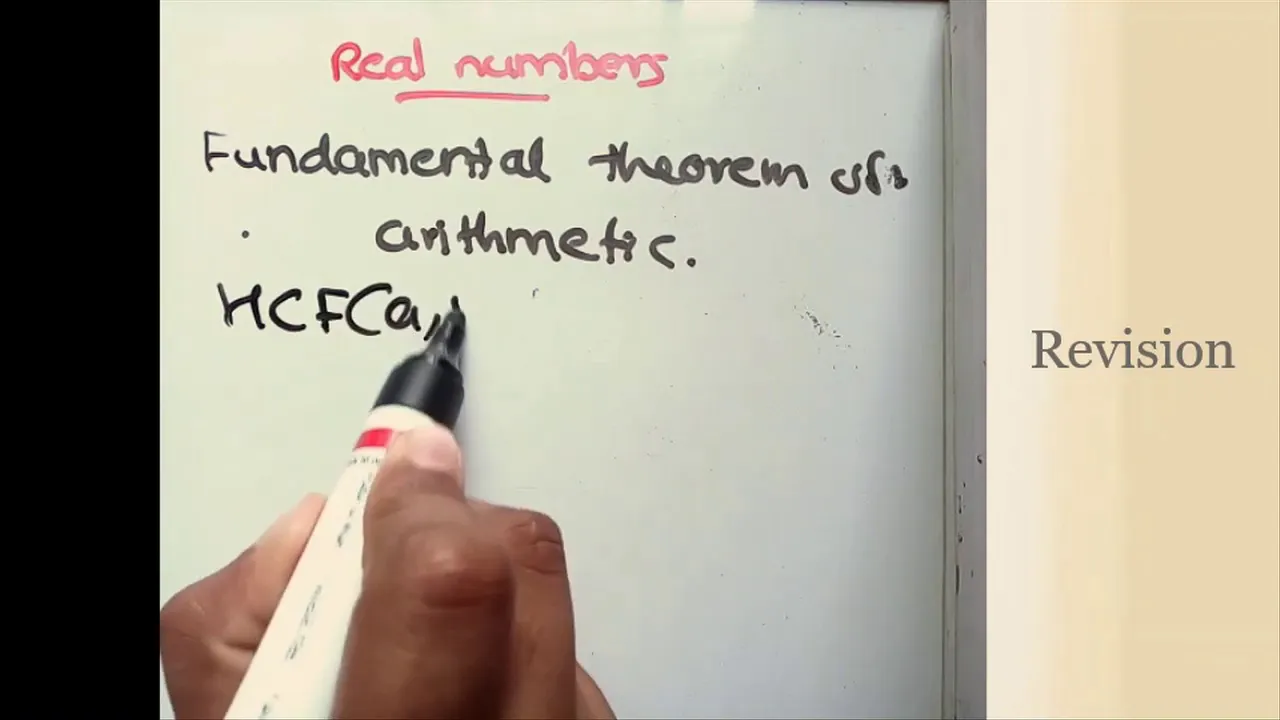 Real numbers
Fundamental theorem of
arithmetic.
HCF(a,
Revision